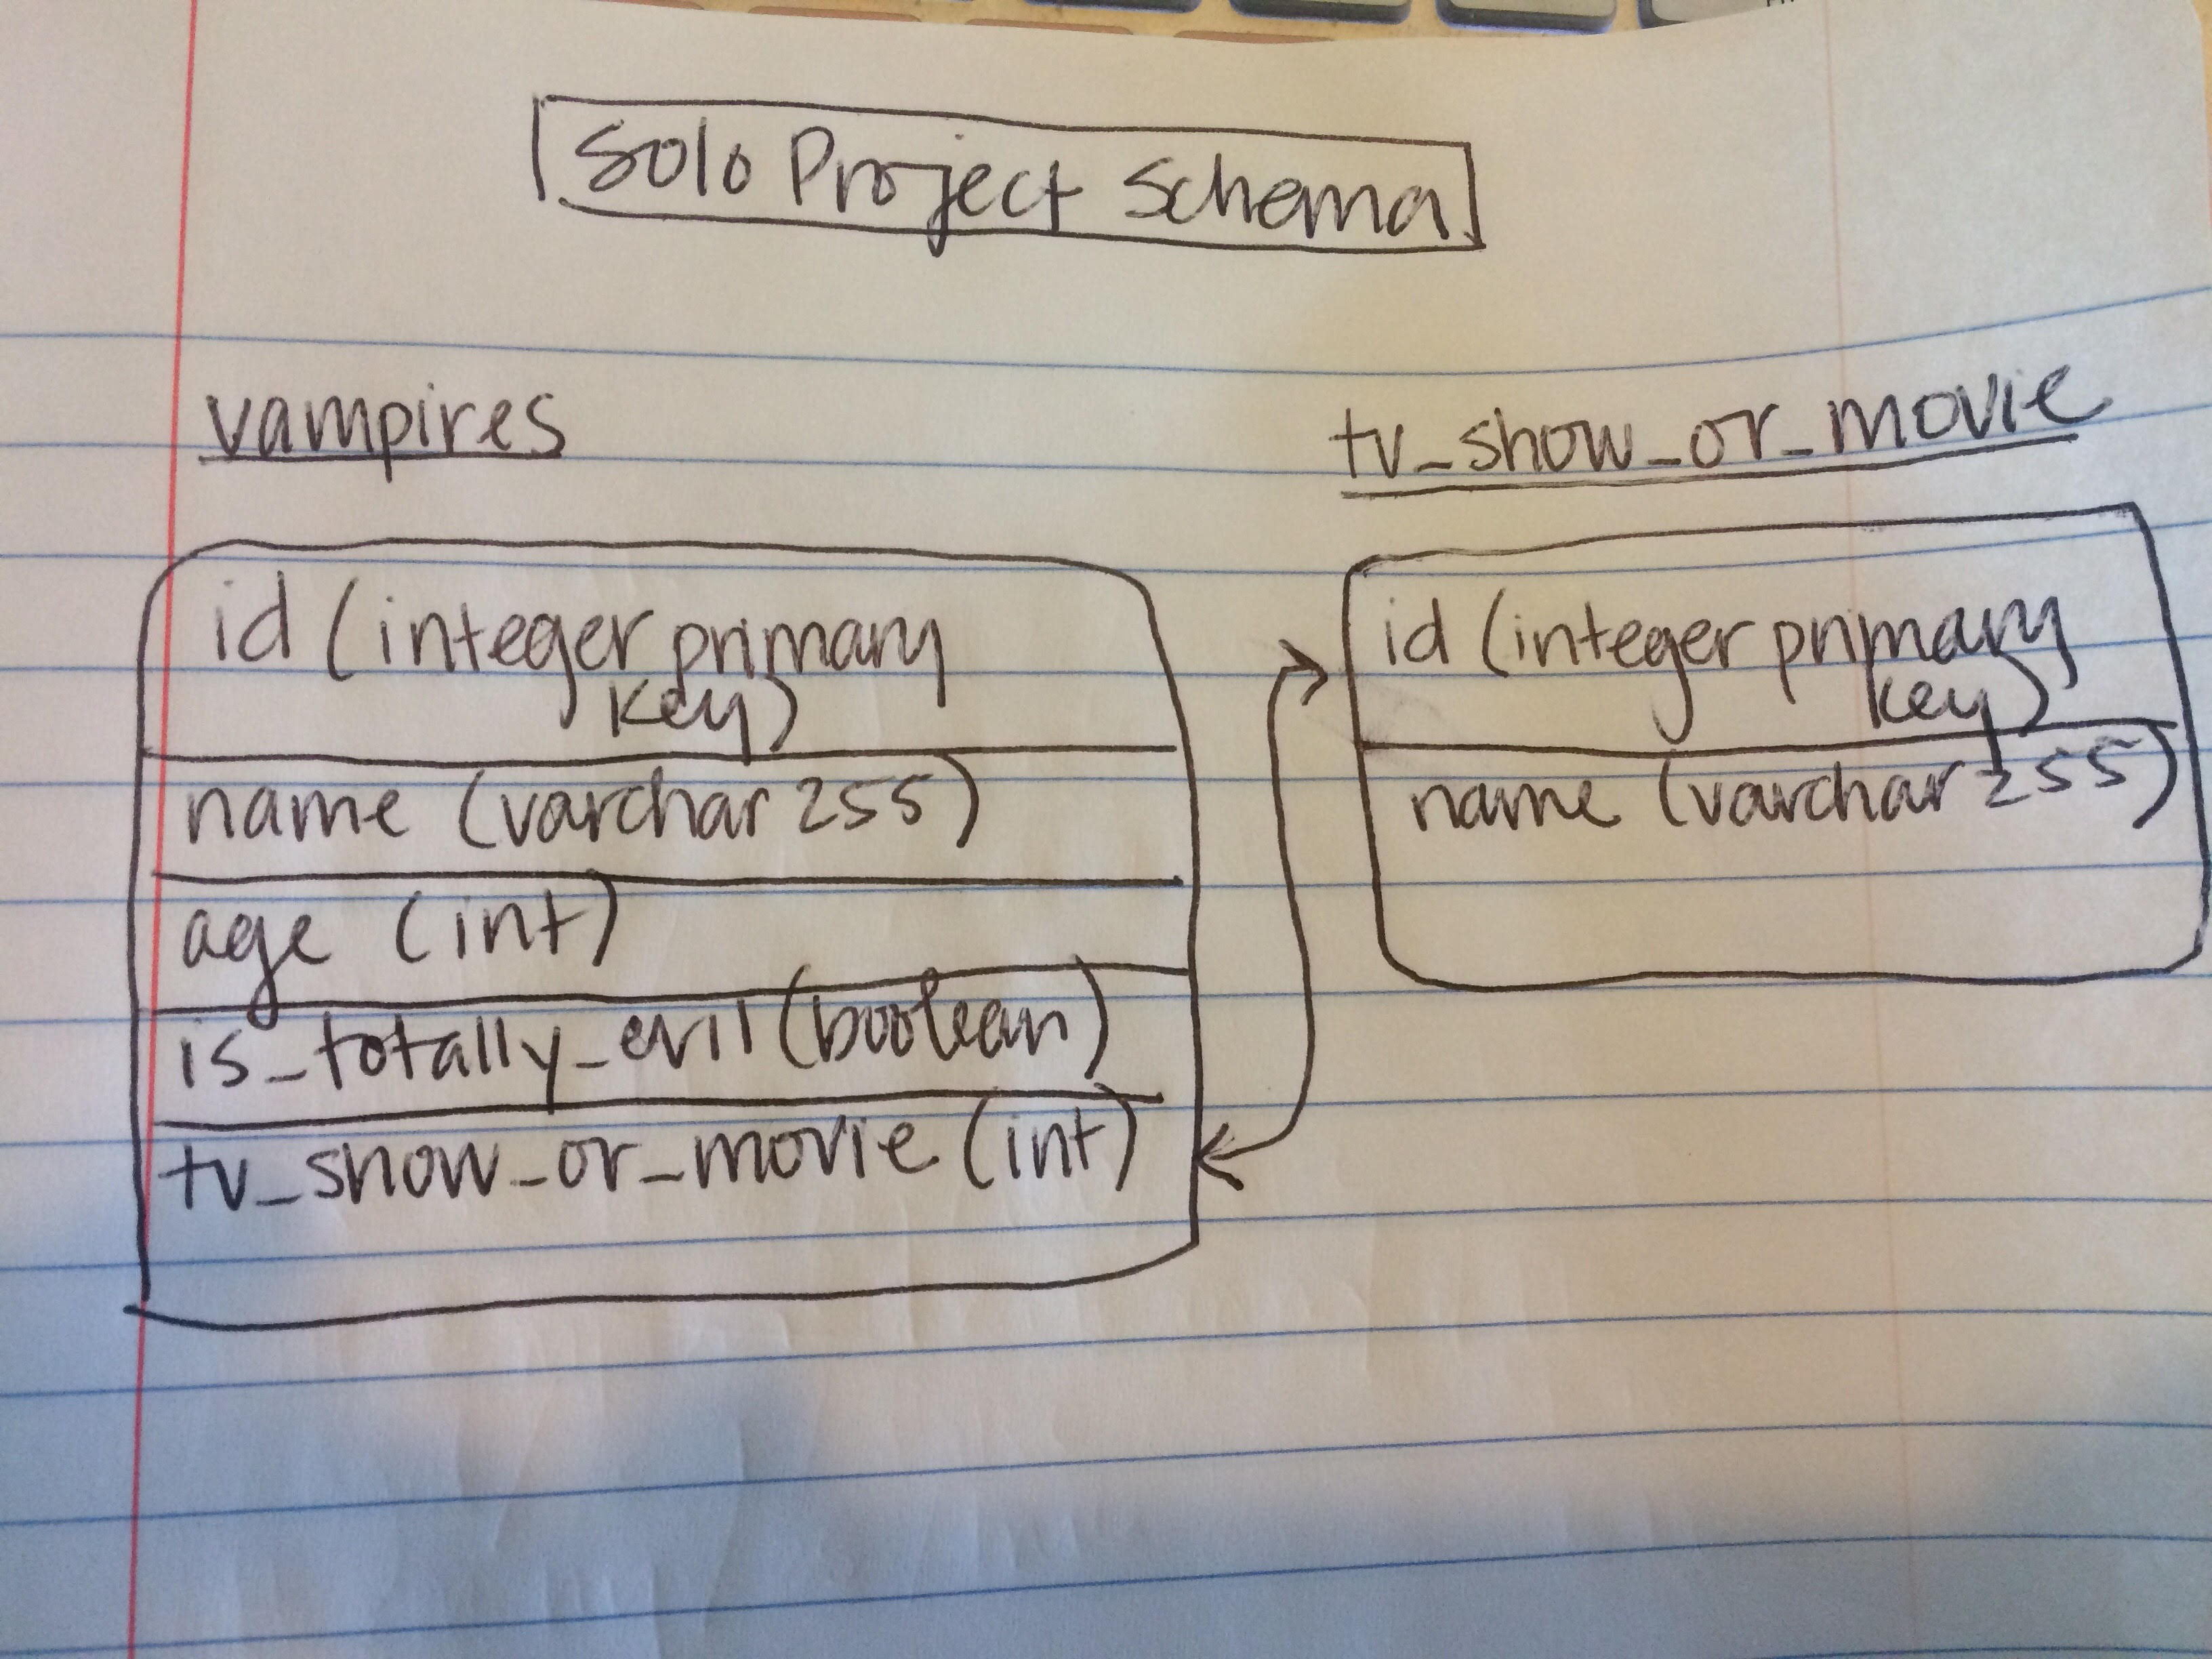 Solo Project Schema
vampires
id (integer primary
key)
name (varchar 255)
age (int)
is_totally_evil (boolean)
tv_show_or_movie (int)
tv_show_or_movie
id (integer primary
key)
name (varchar 255)